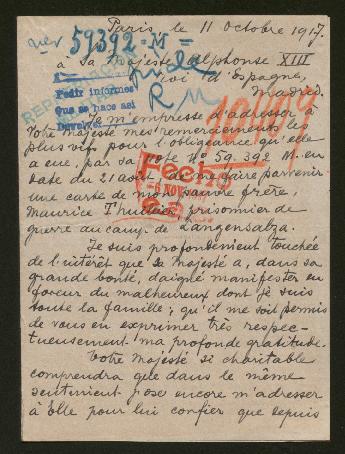 Paris, le 11 Octobre 1917.
ver 59392 = M =
à Sa Majesté Alphonse XIII
roi d'Espagne,
Madrid.
Pedir informes
Que se hace así
Devolver
R M
Je m'empresse d'adresser à
Votre Majesté mes remerciements les
plus vifs pour l'obligeance qu'elle
a eue, par sa note No 59.392 M. en
date du 21 août de me faire parvenir
une carte de mon pauvre frère,
Maurice Thuilier prisonnier de
guerre au camp de Langensalza.
Fecha
6 NOV
Je suis profondément touchée
de l'intérêt que Sa Majesté a, dans sa
grande bonté, daigné manifester en
faveur du malheureux dont je suis
toute la famille; qu'il me soit permis
de vous en exprimer très respec-
tueusement ma profonde gratitude.
Votre Majesté si charitable
comprendra que dans le même
sentiment j'ose encore m'adresser
à Elle pour lui confier que depuis